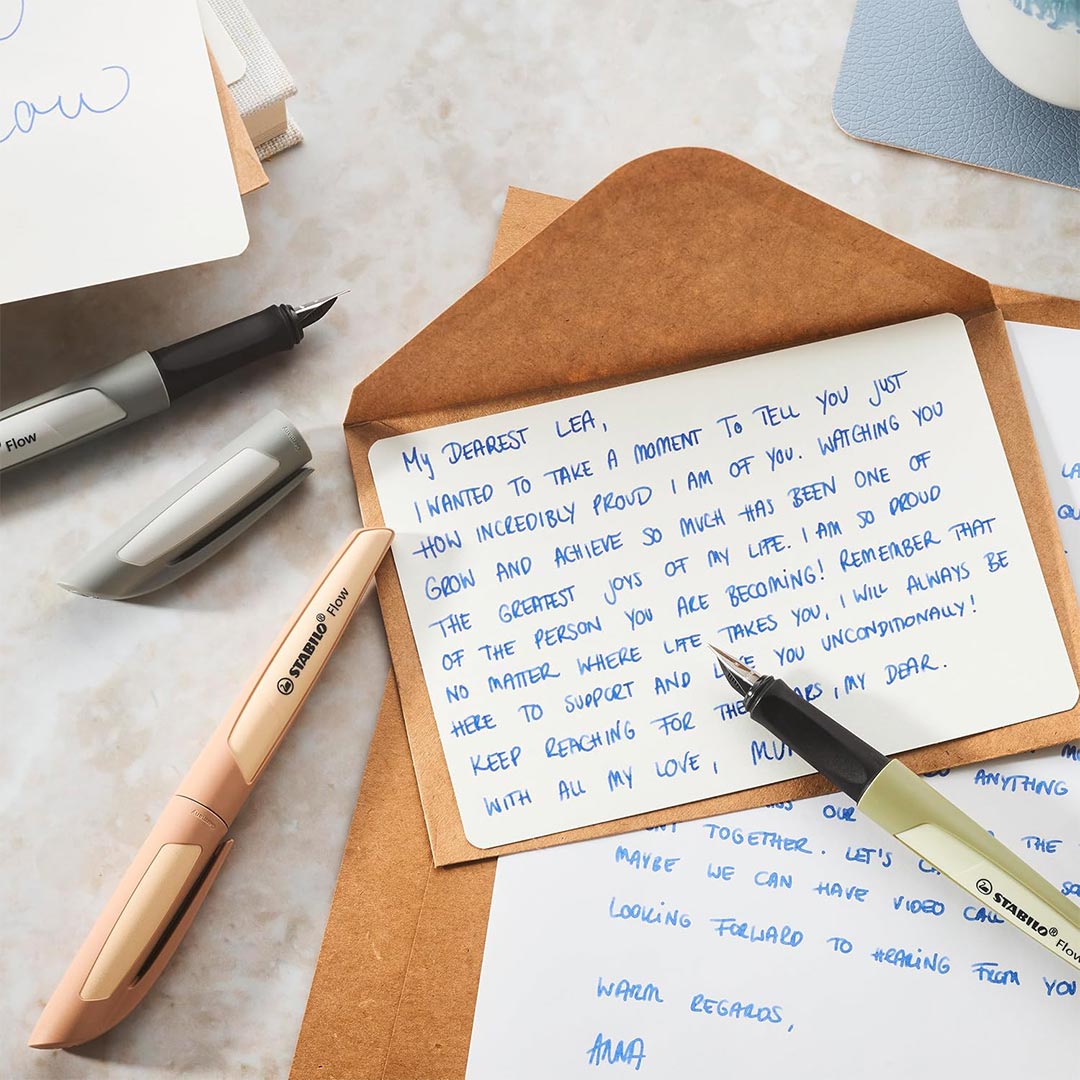 ow
Flow
STABILO® Flow
My DEAREST LEA,
I WANTED TO TAKE A MOMENT TO TELL YOU JUST
HOW INCREDIBLY PROUD I AM OF YOU. WATCHING YOU
GROW AND ACHIEVE SO MUCH HAS BEEN ONE OF
THE GREATEST JOYS OF MY LIFE. I AM SO PROUD
OF THE PERSON YOU ARE BECOMING! REMEMBER THAT
NO MATTER WHERE LIFE TAKES YOU, I WILL ALWAYS BE
HERE TO SUPPORT AND YOU UNCONDITIONALLY!
KEEP REACHING FOR , MY DEAR.
WITH ALL MY LOVE,
STABILO® Flow
ANYTHING
OUR THE
TOGETHER. LET'S
MAYBE WE CAN HAVE VIDEO CALL
LOOKING FORWARD TO HEARING FROM YOU
WARM REGARDS,
ANNA